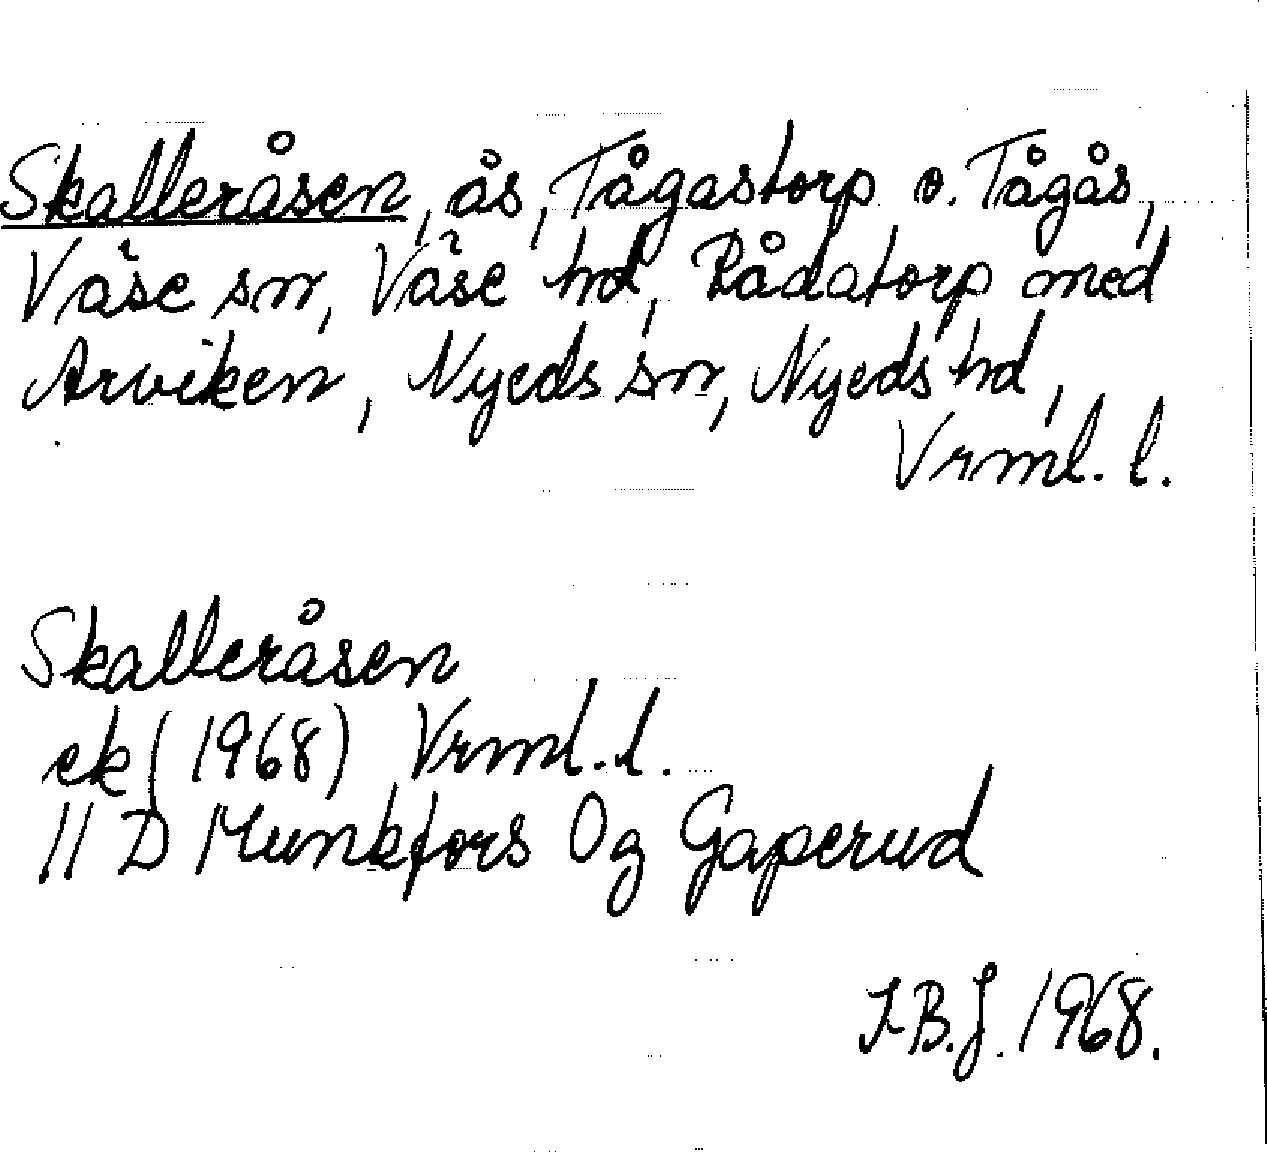 Skalleråsen, ås, Tågastorp o. Tågås,
Väse sn, Väse hd, Rådatorp med
Arviken, Nyeds sn, Nyeds hd,
Vrml. l.
Skalleråsen
ek (1968) Vrml. l.
11 D Munkfors 0g Gaperud
I.B.J. 1968.